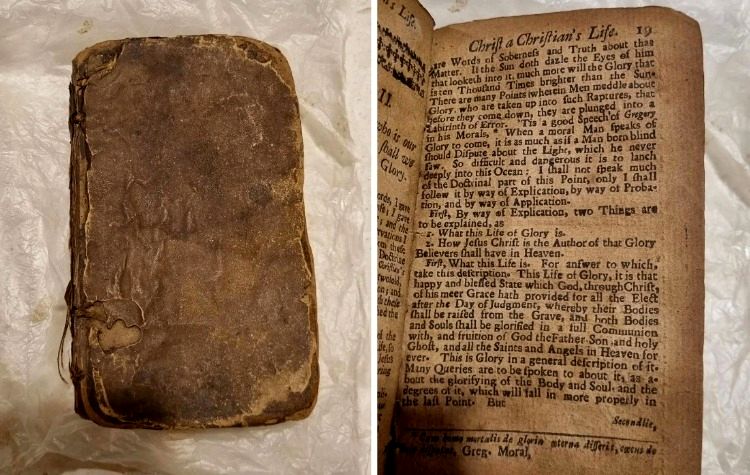 's Life.
II.
who is our
shall we
Glory.
Christ a Christian's Life. 19
are Words of Soberness and Truth about that
Matter. If the Sun doth dazle the Eyes of him
that looketh into it, much more will the Glory that
is ten Thousand Times brighter than the Sun.
There are many Points wherein Men meddle about
Glory, who are taken up into such Raptures, that
before they come down, they are plunged into a
Labirinth of Error. 'Tis a good Speech of Gregory
in his Morals, * When a moral Man speaks of
Glory to come, it is as much as if a Man born blind
should Dispute about the Light, which he never
saw. So difficult and dangerous it is to lanch
deeply into this Ocean: I shall not speak much
of the Doctrinal part of this Point, only I shall
follow it by way of Explication, by way of Proba-
tion, and by way of Application.
First, By way of Explication, two Things are
to be explained, as
1. What this Life of Glory is.
2. How Jesus Christ is the Author of that Glory
Believers shall have in Heaven.
First, What this Life is. For answer to which,
take this description. This Life of Glory, it is that
happy and blessed State which God, through Christ,
of his meer Grace hath provided for all the Elect
after the Day of Judgment, whereby their Bodies
shall be raised from the Grave, and both Bodies
and Souls shall be glorified in a full Communion
with, and fruition of God the Father Son and holy
Ghost, and all the Saints and Angels in Heaven for
ever. This is Glory in a general description of it.
Many Queries are to be spoken to about it, as a-
bout the glorifying of the Body and Soul, and the
degrees of it, which will fall in more properly in
the last Point. But
Secondlie,
homo mortalis de gloria æterna disserit,
Greg. Moral,